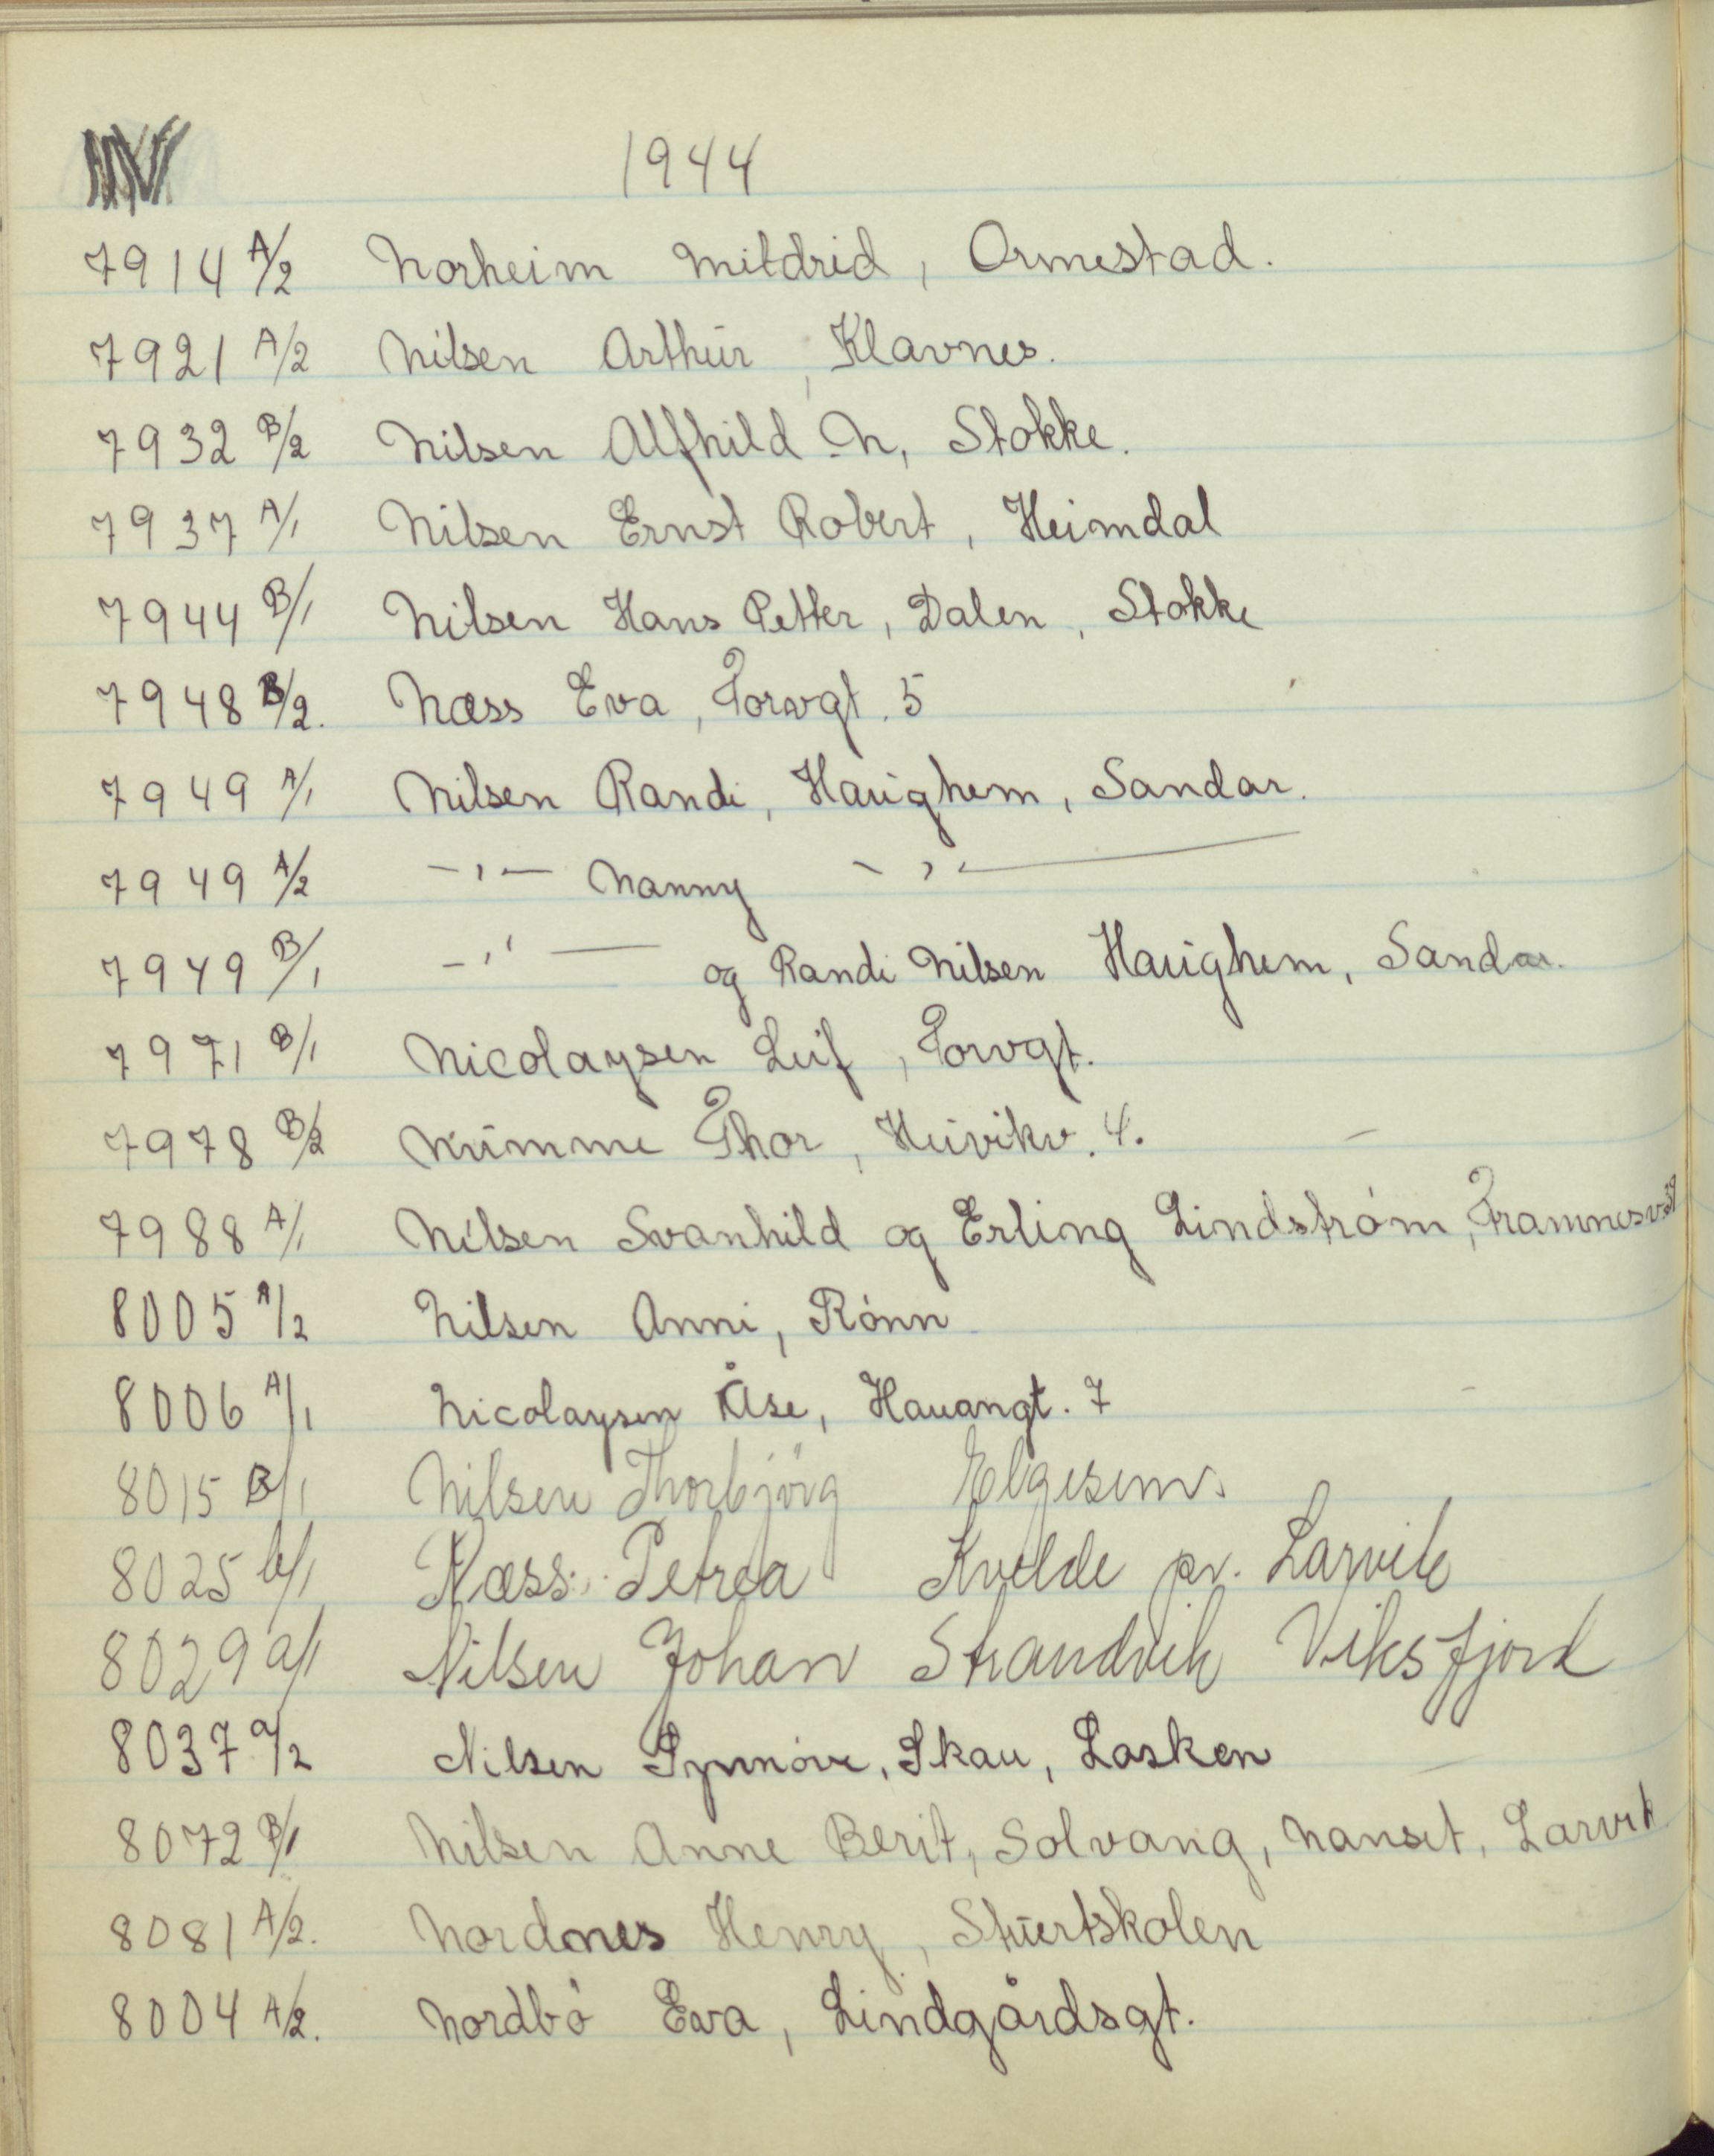 N 1944
7914 A/2 Norheim Mildrid, Ormestad.
7921 A/2 Nilsen Arthur, Klavnes.
7932 B/2 Nilsen Alfhild N, Stokke.
7937 A/1 Nilsen Ernst Robert, Heimdal
7944 B/1 Nilsen Hans Petter, Dalen, Stokke
7948 B/2. Næss Eva, Torvgt. 5
7949 A/1 Nilsen Randi, Haughem, Sandar.
7949 A/2 -"- Nanny -"-
7949 B/1 -"- og Randi Nilsen Haughem, Sandar.
7971 B/1 Nicolaysen Leif, Torvgt.
7978 B/2 Numme Thor, Heivikv. 4.
7988 A/1 Nilsen Svanhild og Erling Lindstrøm, Framnesv
8005 A/2 Nilsen Anni, Rønn
8006 A/1 Nicolaysen Åse, Hauangt. 7
8015 B/1 Nilsen Thorbjörg Elgesem.
8025 b/1 Næss Petrea Kvelde pr. Larvik
8029 a/1 Nilsen Johan Strandvik Viksfjord
8037 a/2 Nilsen Synnøve, Skau, Lasken
8072 B/1 Nilsen Anne Berit, Solvang, Nanset, Larvik
8081 A/2. Nordnes Henry, Stuertskolen
8004 A/2. Nordbø Eva, Lindgårdsgt.